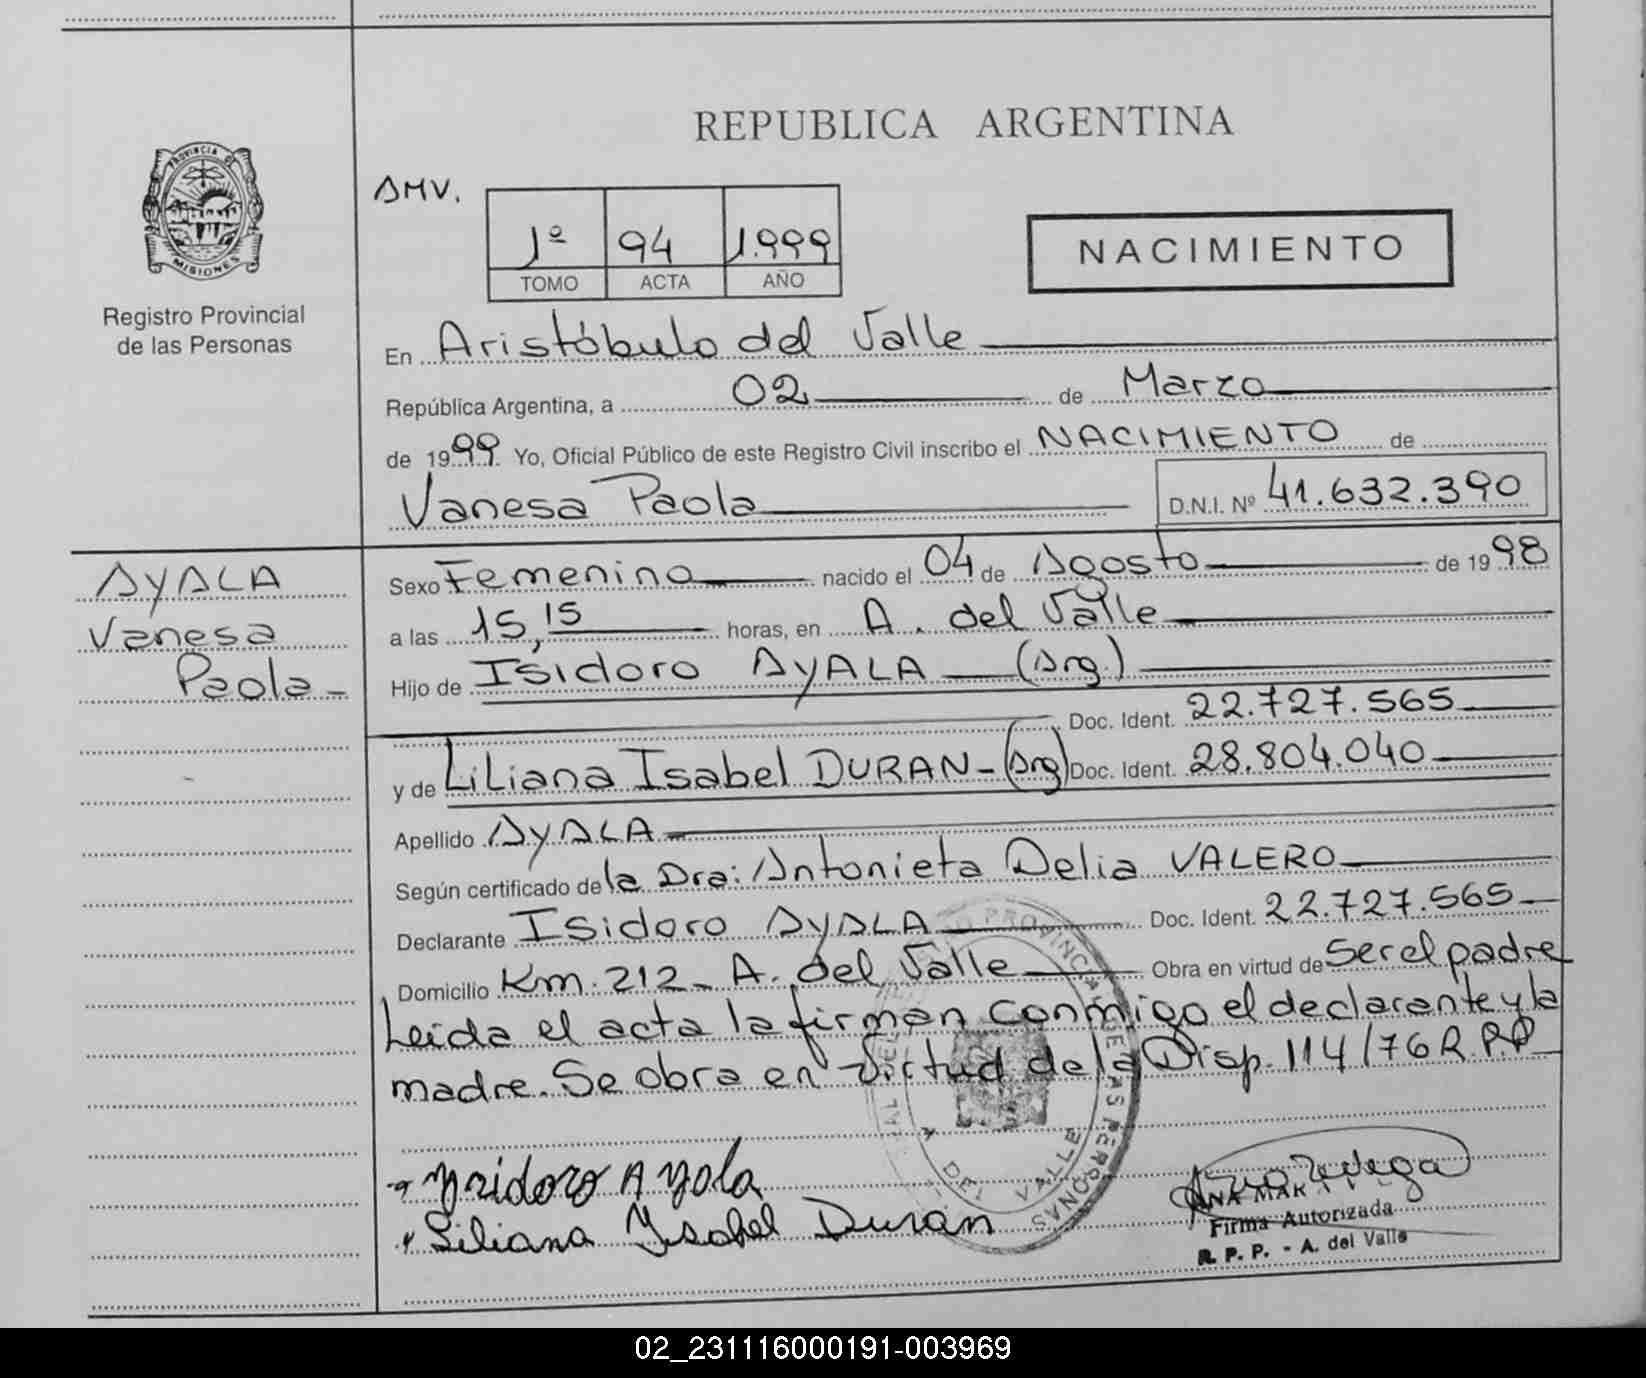 REPUBLICA ARGENTINA
PROVINCIA DE MISIONES
Registro Provincial
de las Personas
AMV.
1º 94 1.999
TOMO ACTA AÑO
NACIMIENTO
En Aristóbulo del Valle
República Argentina, a 02 de Marzo
de 1999 Yo, Oficial Público de este Registro Civil inscribo el NACIMIENTO de
Vanesa Paola D.N.I. Nº 41.632.390
AYALA
Vanesa
Paola-
Sexo Femenino nacido el 04 de Agosto de 1998
a las 15,15 horas, en A. del Valle
Hijo de Isidoro AYALA (Arg.)
Doc. Ident. 22.727.565
y de Liliana Isabel DURAN-(Arg) Doc. Ident. 28.804.040
Apellido AYALA
Según certificado de la Dra: Antonieta Delia VALERO
Declarante Isidoro AYALA Doc. Ident. 22.727.565
Domicilio Km. 212- A. del Valle Obra en virtud de Ser el padre
Leida el acta la firman conmigo el declarante y la
madre. Se obra en virtud de la Disp. 114/76 R.P.P
DEL VALLE
Ysidoro Ayala
Liliana Ysabel Duran
ANA
Firma Autorizada
R. P. P. - A. del Valle
02_231116000191-003969